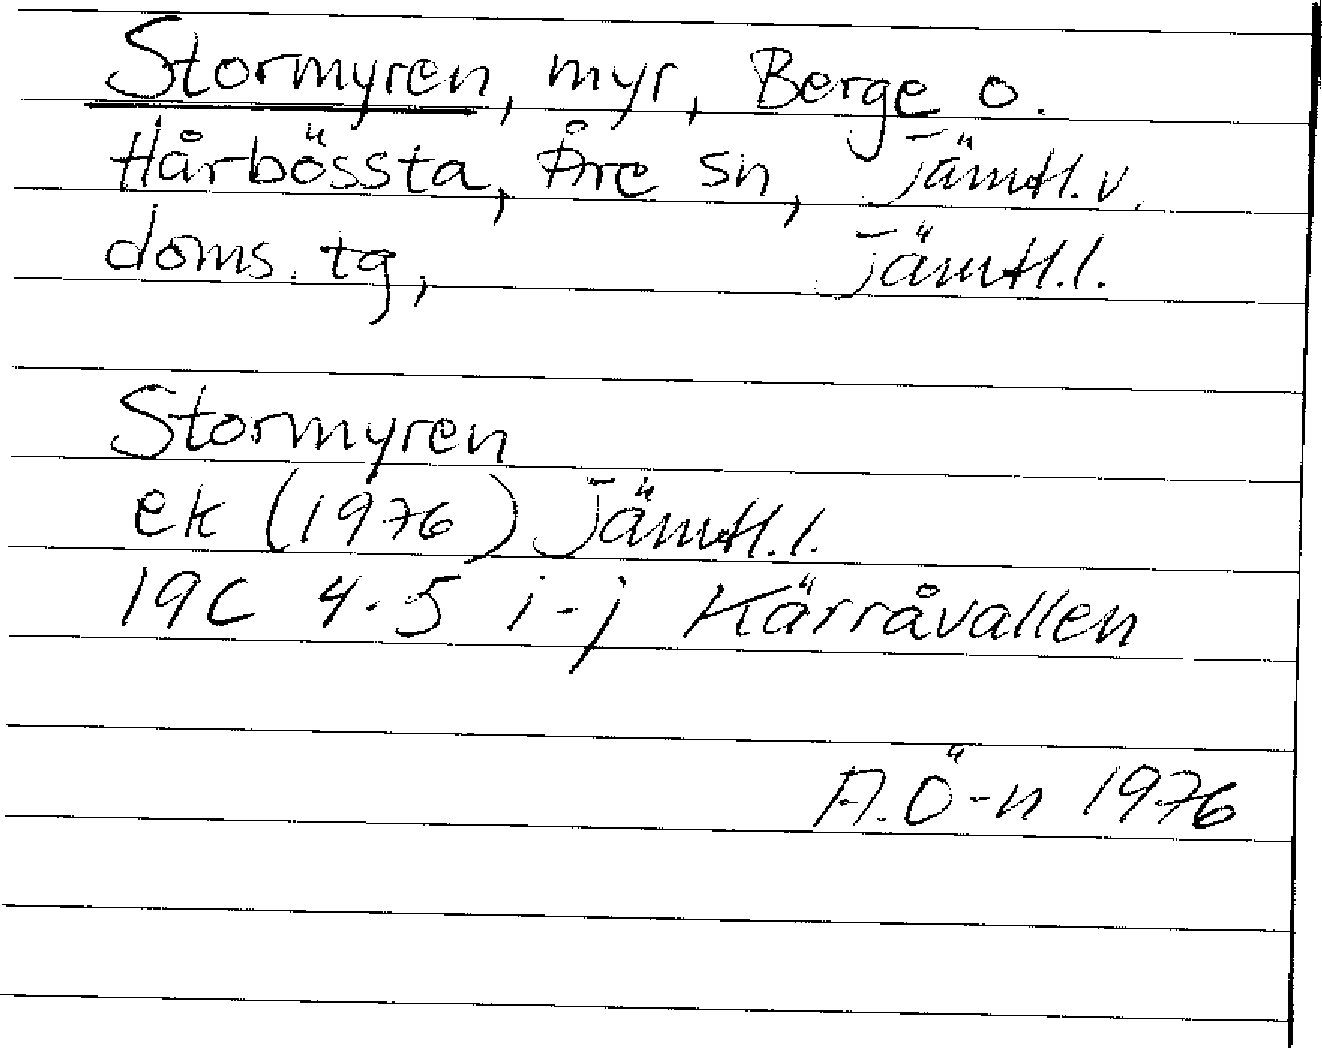 Stormyren, myr, Berge o.
Hårbössta, Åre sn, Jämtl. v.
doms. tg, Jämtl. l.
Stormyren
ek (1976) Jämtl. l.
19C 4-5 i-j Kärråvallen
A. Ö-n 1976